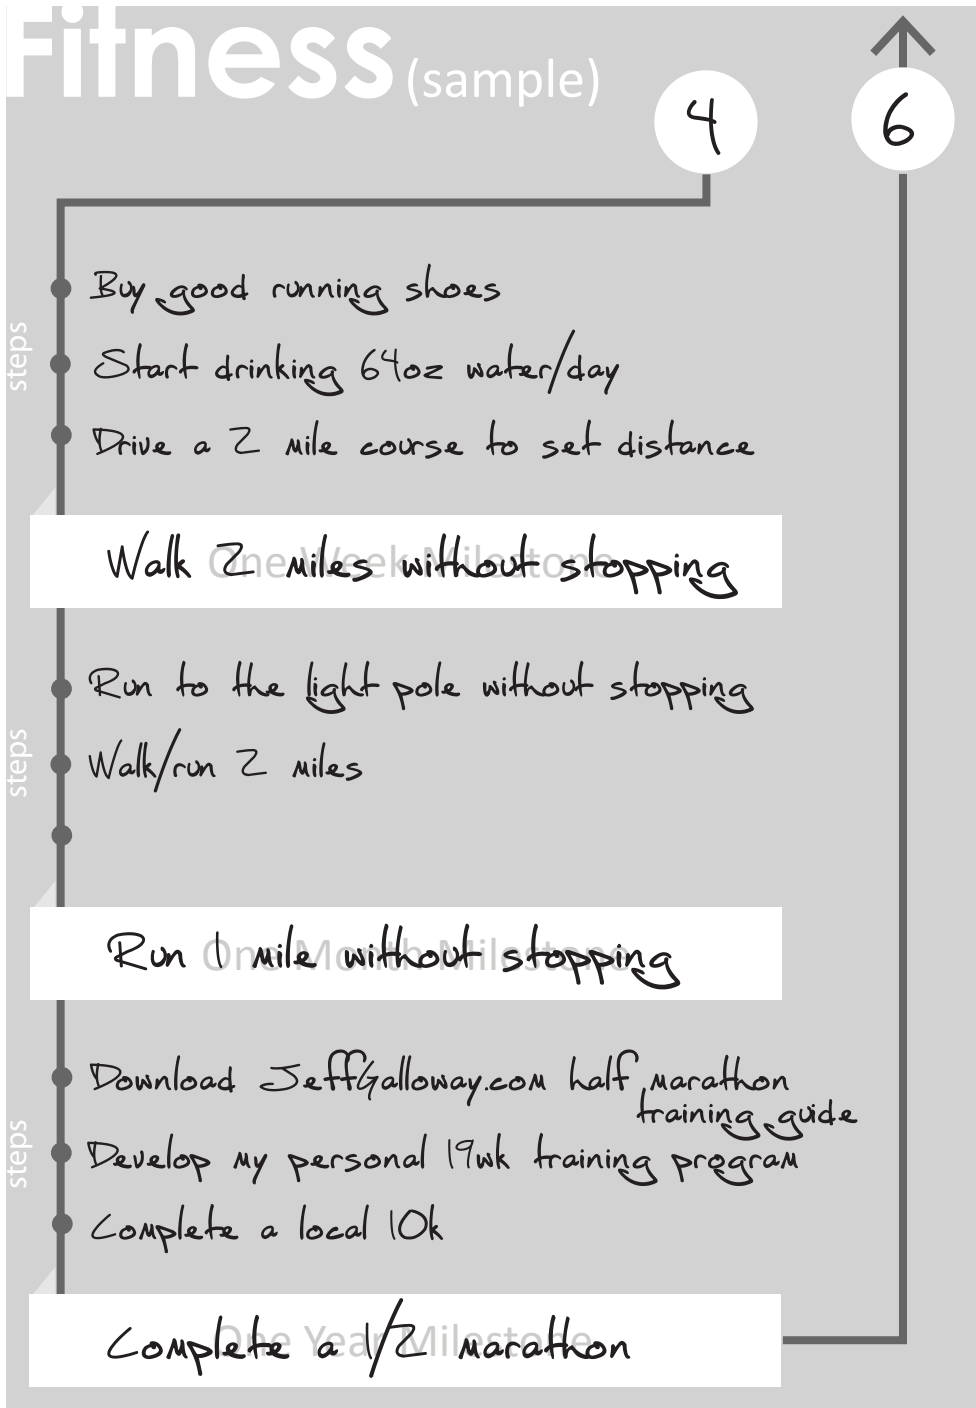 Fitness (sample)
4
6
Buy good running shoes
steps
Start drinking 64oz water/day
Drive a 2 mile course to set distance
One Week Milestone
Walk 2 miles without stopping
Run to the light pole without stopping
steps
Walk/run 2 miles
One Month Milestone
Run 1 mile without stopping
Download JeffGalloway.com half marathon
training guide
steps
Develop my personal 19wk training program
Complete a local 10k
One Year Milestone
Complete a 1/2 marathon